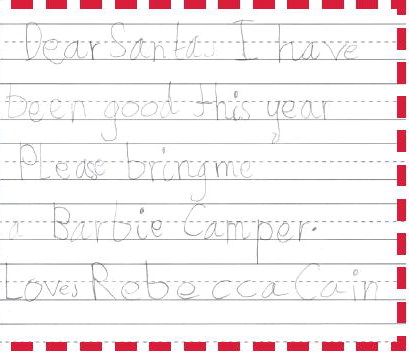 Dear Santa. I have
been good this year
Please bring me
a Barbie Camper.
Loves Rebecca Cain